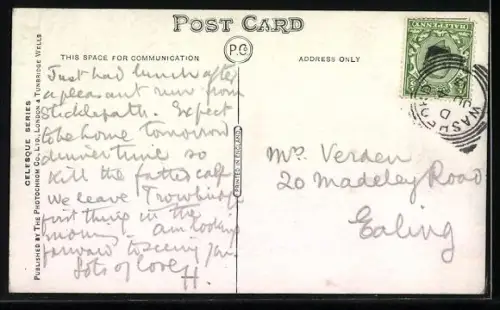 POST CARD
THIS SPACE FOR COMMUNICATION
P.C.
ADDRESS ONLY
Just had lunch after
a pleasant run from
Sticklepath. Expect
to be home tomorrow
dinner time so
kill the fatted calf
we leave Trowbridge
first thing in the
morning. Am looking
forward to seeing you
Lots of love
H.
Mrs Verden
20 Madeley Road
Ealing
HALFPENNY
WASHFO
JU
D
CELESQUE SERIES
PUBLISHED BY THE PHOTOCHROM CO., LTD., LONDON & TUNBRIDGE WELLS
PRINTED IN ENGLAND